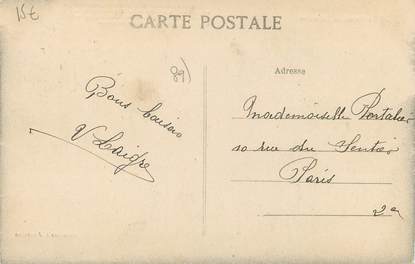 15€
CARTE POSTALE
89)
Adresse
Bons baisers
V Laigre
Mademoiselle Portalier
10 rue du Sentier
Paris
2e